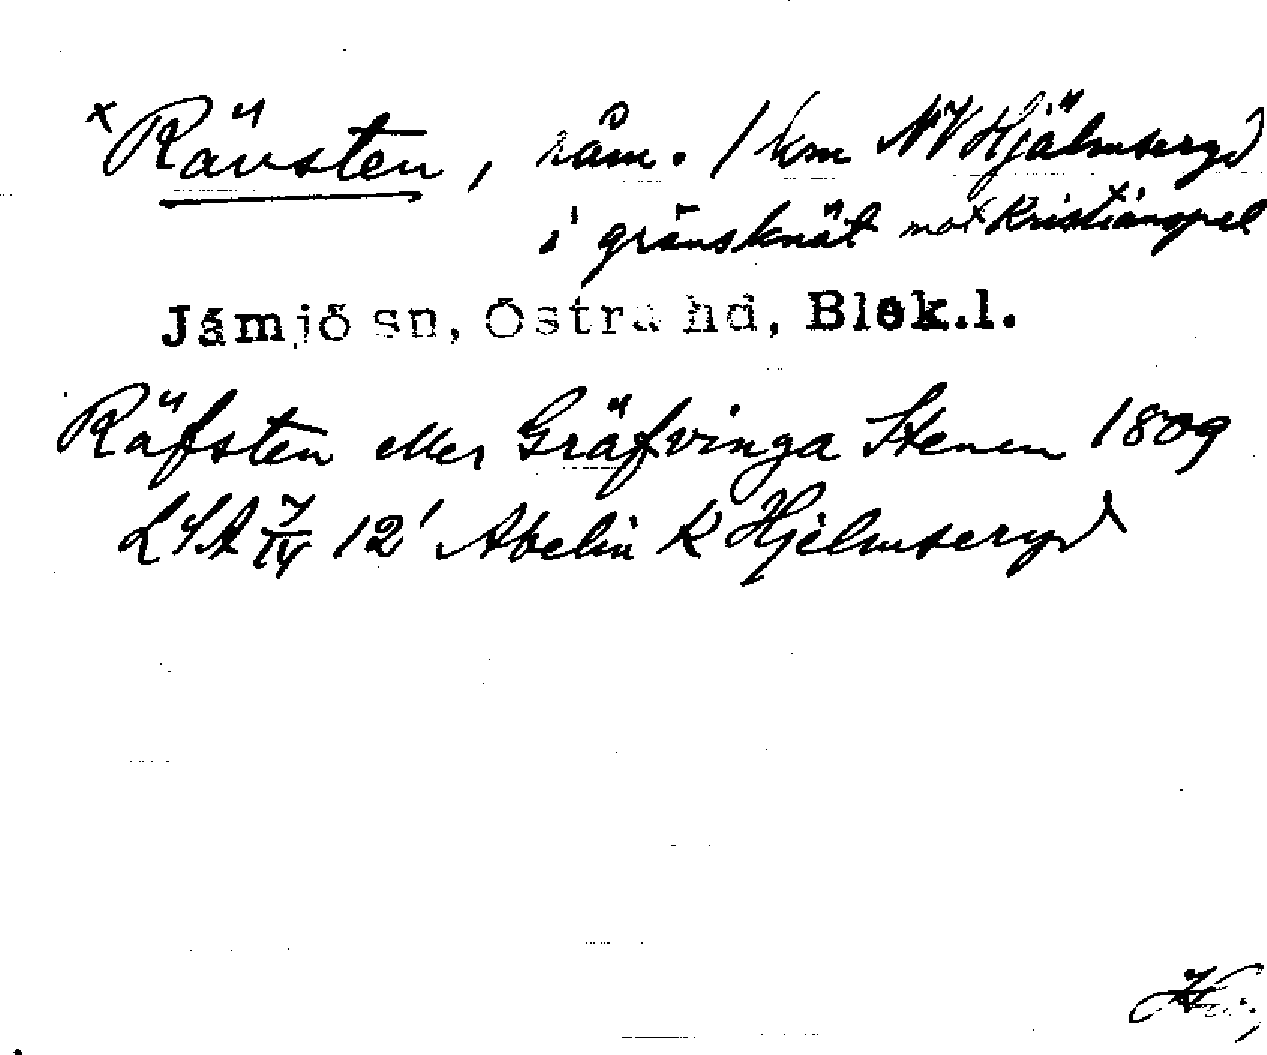 x Rävsten, råm. 1 km NV Hjälmseryd
i gränsknät mot Kristianopel
Jämjö sn, Östra hd, Blek.l.
Räfsten eller Gräfvinga Stenen 1809
LSA 7/IV 12' Abelin K Hjelmseryd